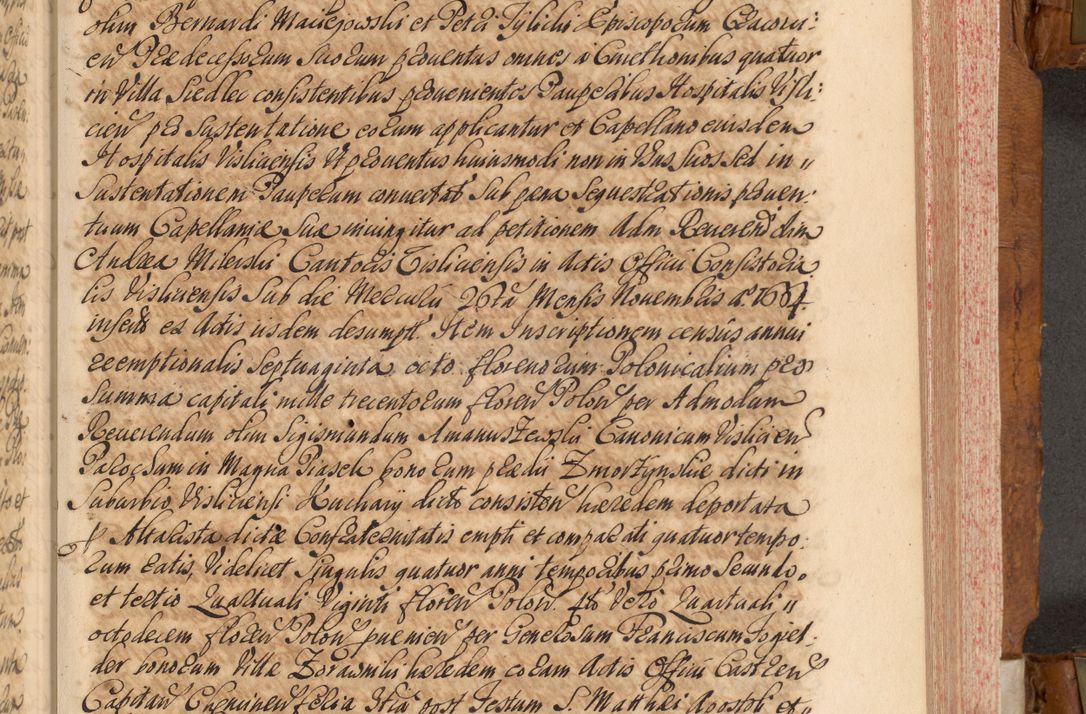 olim Bernardi Maciejowski et Petri Tylicki Episcoporum Cracovi:
eñ Prædecessorum Suorum proventus omnes a Cmethonibus quatuor
in Villa Siedlec consistentibus provenientes Pauperibus Hospitalis Visli:
cien pro Sustentatione eorum applicantur et Capellano eiusdem
Hospitalis Visliciensis Ut proventus huiusmodi non in Usus suos Sed in
Sustentationem Pauperum convertat Sub pæna Sequestrationis proven:
tuum Capellaniæ Suæ iniungitur ad petitionem Adm Reverend dm
Andrea Milerski Cantoris Visliciensis in Actis Officii Consistoria
lis Visliciensis Sub die Mercurii 26ta Mensis Novembris Aº 1684
insert ex Actis iisdem desumpt. Item Inscriptionem census annui
reemptionalis Septuaginta octo florenorum Polonicalium pro
Summa capitali mille trecentorum floren Polon per Admodum
Reverendum olim Sigismundum Amanuszewski Canonicum Vislicien
Parochum in Magna Piasek bonorum prædii Zmortynskie dicti in
Suburbio Visliciensi Kuchary dicto consisten hæredem deportata
Altarista dictæ Confraternitatis empti et comparati quatuor tempo:
rum ratis, Videlicet Singulis quatuor anni temporibus primo Secundo
et tertio Quartuali Viginti floren Polon. 4to Vero Quartuali
octodecem floren Polon puenien per Generosum Franciscum Sogiel:
der bonorum Villæ Zorawniki hæredem coram Actis Officii Castren
Capitan Chencinen feria 3tia post Festum S. Matthæi Apostoli et